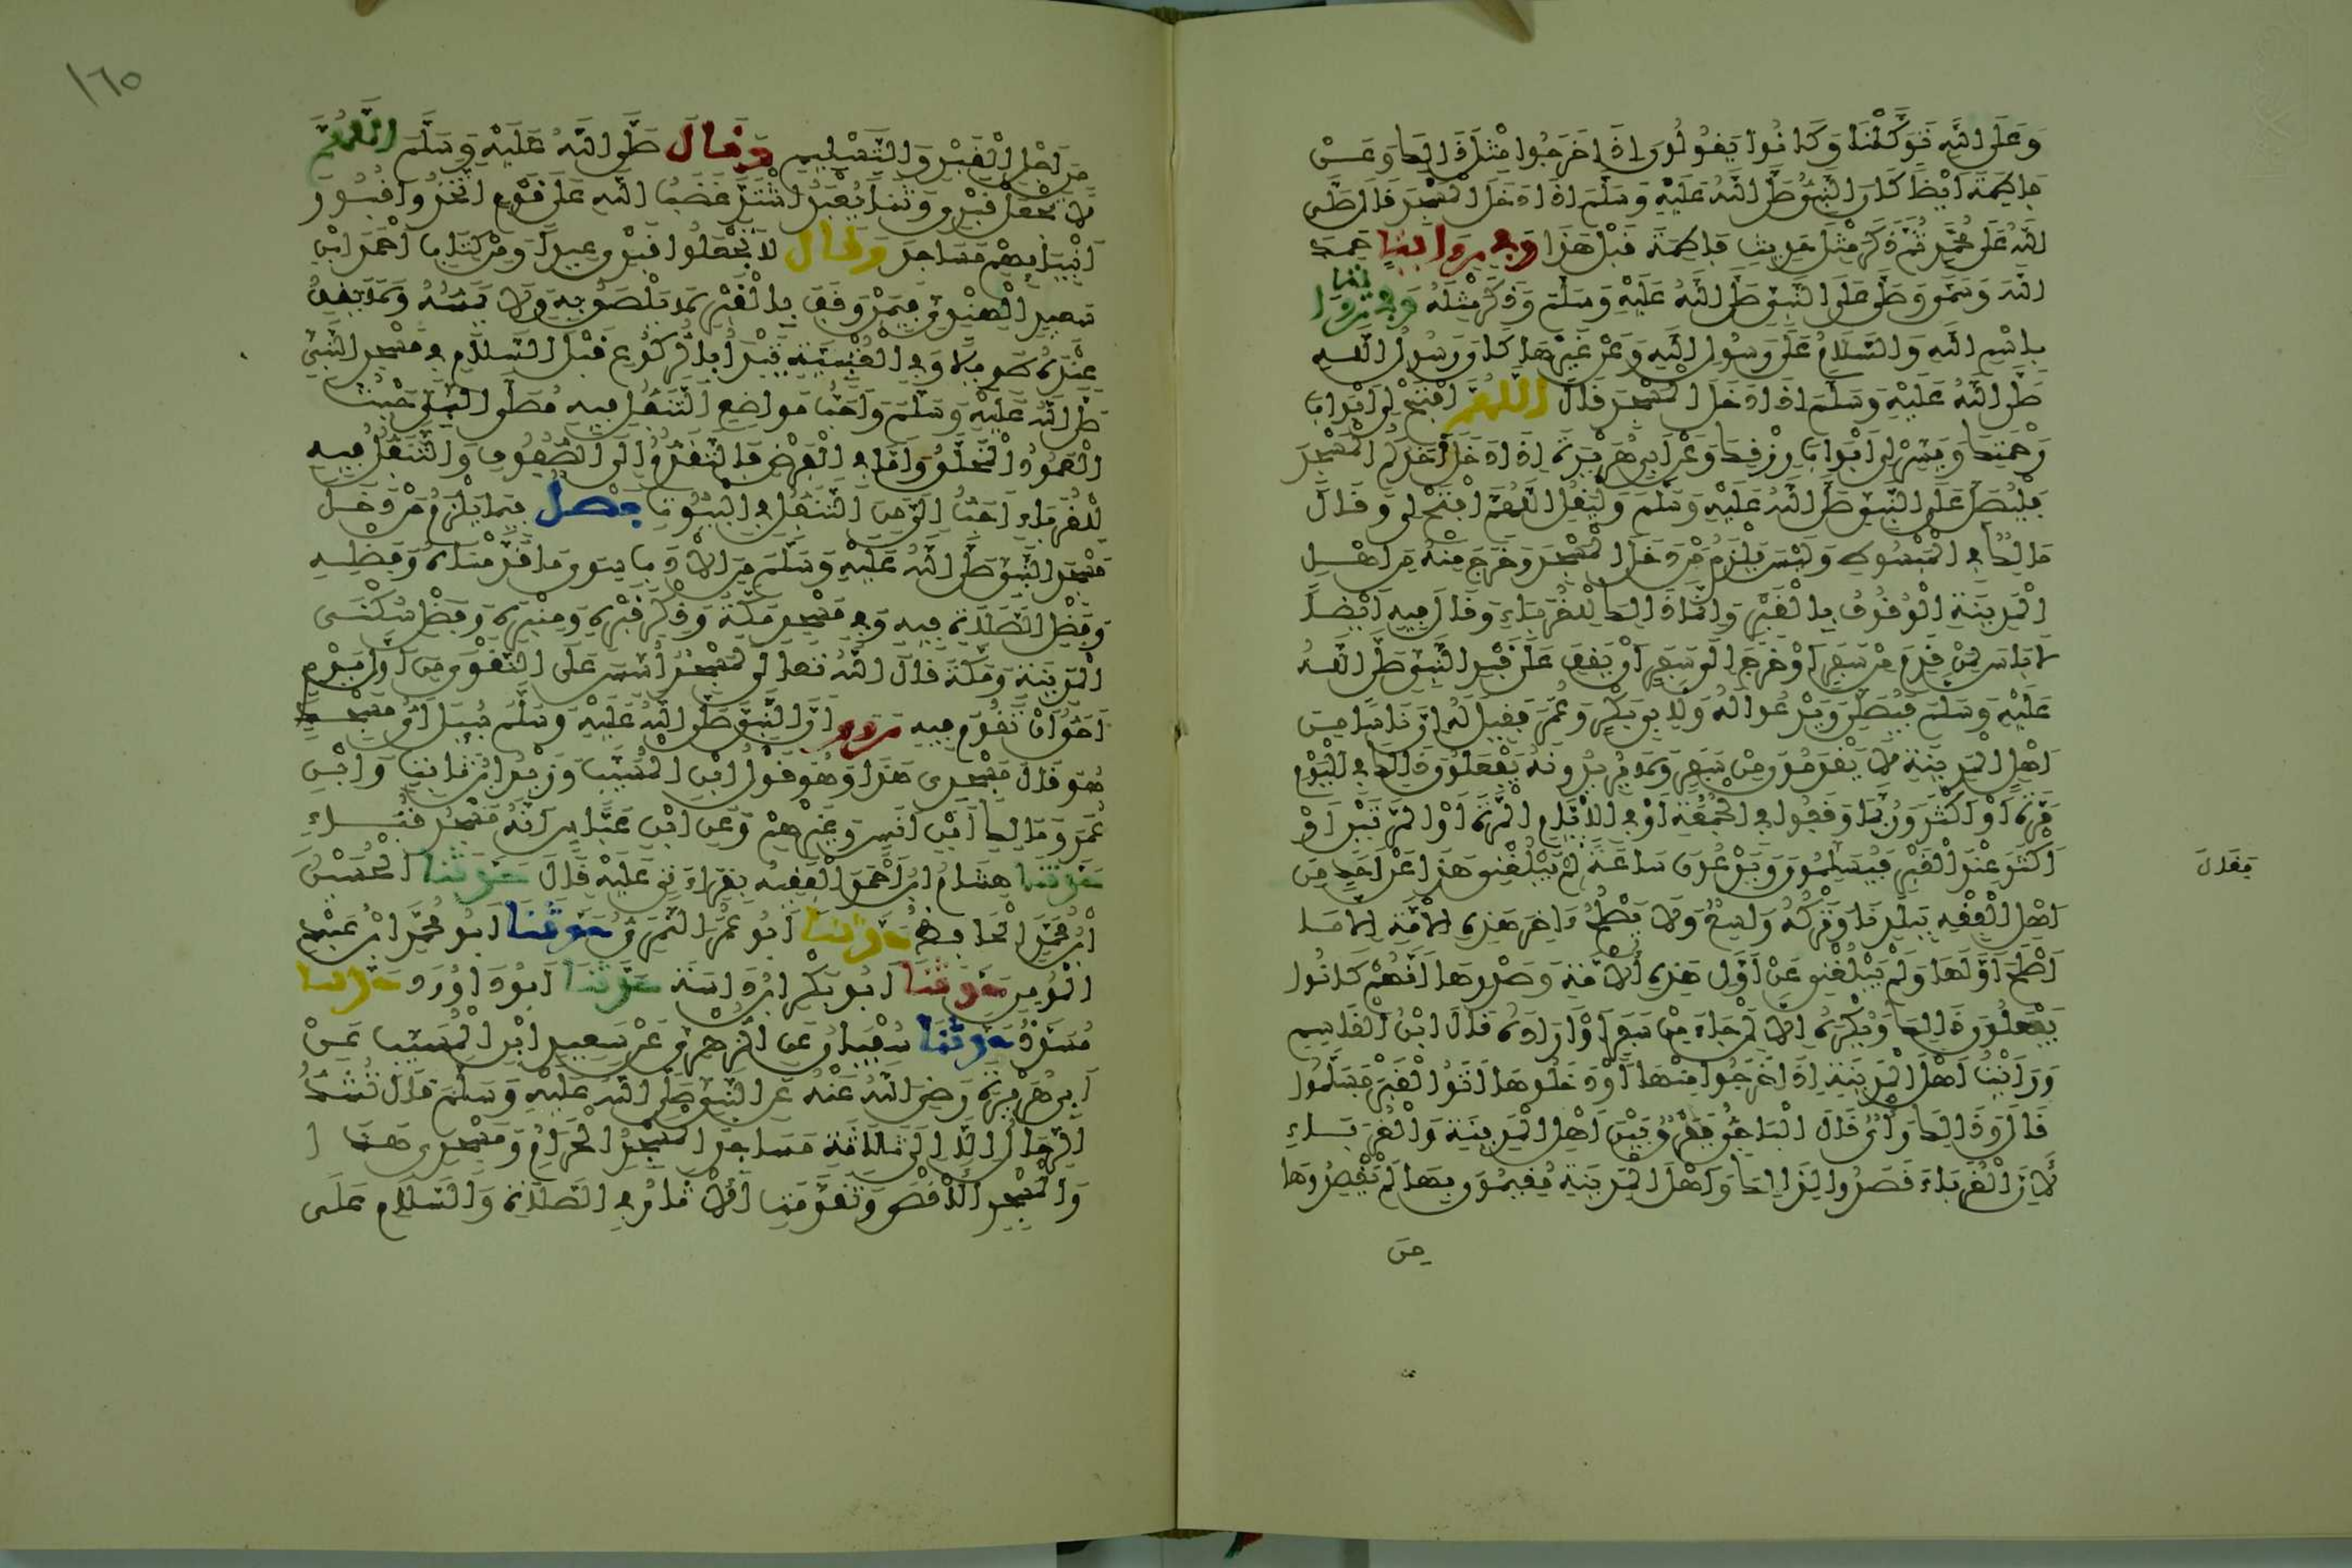 وَعَلَى اللَّهِ تَوَكَّلْنَا وَكَانُوا يَقُولُونَ إِذَا خَرَجُوا مِثْلَ ذَالِكَ وَعَنْ
فَاطِمَةَ أَيْضًا كَانَ النَّبِيُّ صَلَّى اللَّهُ عَلَيْهِ وَسَلَّمَ إِذَا دَخَلَ الْمَسْجِدَ قَالَ صَلَّى
اللَّهُ عَلَى مُحَمَّدٍ ثُمَّ ذَكَرَ مِثْلَ حَدِيثِ فَاطِمَةَ قَبْلَ هَذَا وَفِي رِوَايَةٍ حَمِدَ
اللَّهَ وَسَمَّى وَصَلَّى عَلَى النَّبِيِّ صَلَّى اللَّهُ عَلَيْهِ وَسَلَّمَ وَذَكَرَ مِثْلَهُ وَفِي رِوَايَةٍ
بِاسْمِ اللَّهِ وَالسَّلَامُ عَلَى رَسُولِ اللَّهِ وَعَنْ غَيْرِهَا كَانَ رَسُولُ اللَّهِ
صَلَّى اللَّهُ عَلَيْهِ وَسَلَّمَ إِذَا دَخَلَ الْمَسْجِدَ قَالَ اللَّهُمَّ افْتَحْ لِي أَبْوَابَ
رَحْمَتِكَ وَيَسِّرْ لِي أَبْوَابَ رِزْقِكَ وَعَنْ أَبِي هُرَيْرَةَ إِذَا دَخَلَ أَحَدُكُمُ الْمَسْجِدَ
فَلْيُصَلِّ عَلَى النَّبِيِّ صَلَّى اللَّهُ عَلَيْهِ وَسَلَّمَ وَلْيَقُلِ اللَّهُمَّ افْتَحْ لِي وَقَالَ
مَالِكٌ فِي الْمَبْسُوطِ وَلَيْسَ يَلْزَمُ مَنْ دَخَلَ الْمَسْجِدَ وَخَرَجَ مِنْهُ مِنْ أَهْلِ
الْمَدِينَةِ الْوُقُوفُ بِالْقَبْرِ وَإِنَّمَا ذَالِكَ لِلْغُرَبَاءِ وَقَالَ فِيهِ أَيْضًا
لَا بَأْسَ لِمَنْ قَدِمَ مِنْ سَفَرٍ أَوْ خَرَجَ إِلَى سَفَرٍ أَنْ يَقِفَ عَلَى قَبْرِ النَّبِيِّ صَلَّى اللَّهُ
عَلَيْهِ وَسَلَّمَ فَيُصَلِّيَ وَيَدْعُوَا لَهُ وَلِأَبِي بَكْرٍ وَعُمَرَ فَقِيلَ لَهُ إِنَّ نَاسًا مِنْ
أَهْلِ الْمَدِينَةِ لَا يَقْدَمُونَ مِنْ سَفَرٍ وَلَا يُرِيدُونَهُ يَفْعَلُونَ ذَالِكَ فِي الْيَوْمِ
مَرَّةً أَوْ أَكْثَرَ وَرُبَّمَا وَقَفُوا فِي الْجُمُعَةِ أَوْ فِي الْأَيَّامِ الْمَرَّةَ أَوِ الْمَرَّتَيْنِ أَوْ
أَكْثَرَ عِنْدَ الْقَبْرِ فَيُسَلِّمُونَ وَيَدْعُونَ سَاعَةً لَمْ يَبْلُغْنِي هَذَا عَنْ أَحَدٍ مِنْ
فَقَالَ
أَهْلِ الْفِقْهِ بِبَلَدِنَا وَتَرْكُهُ وَاسِعٌ وَلَا يُصْلِحُ ءَاخِرَ هَذِهِ الْأُمَّةِ إِلَّا مَا
أَصْلَحَ أَوَّلَهَا وَلَمْ يَبْلُغْنِي عَنْ أَوَّلِ هَذِهِ الْأُمَّةِ وَصَدْرِهَا أَنَّهُمْ كَانُوا
يَفْعَلُونَ ذَالِكَ وَيُكْرَهُ إِلَّا لِمَنْ جَاءَ مِنْ سَفَرٍ أَوْ أَرَادَهُ قَالَ ابْنُ الْقَاسِمِ
وَرَأَيْتُ أَهْلَ الْمَدِينَةِ إِذَا خَرَجُوا مِنْهَا أَوْ دَخَلُوهَا أَتَوُا الْقَبْرَ فَسَلَّمُوا
قَالَ وَذَالِكَ رَأْيٌ قَالَ الْبَاجِيُّ فَفَرْقٌ بَيْنَ أَهْلِ الْمَدِينَةِ وَالْغُرَبَاءِ
لِأَنَّ الْغُرَبَاءَ قَصَدُوا لِذَالِكَ وَأَهْلَ الْمَدِينَةِ مُقِيمُونَ بِهَا لَمْ يَقْصِدُوهَا
مِنْ
١٦٥
مِنْ أَجْلِ الْقَبْرِ وَالتَّسْلِيمِ وَقَالَ صَلَّى اللَّهُ عَلَيْهِ وَسَلَّمَ اللَّهُمَّ
لَا تَجْعَلْ قَبْرِي وَثَنًا يُعْبَدُ اشْتَدَّ غَضَبُ اللَّهِ عَلَى قَوْمٍ اتَّخَذُوا قُبُورَ
أَنْبِيَائِهِمْ مَسَاجِدَ وَقَالَ لَا تَجْعَلُوا قَبْرِي عِيدًا وَمِنْ كِتَابِ أَحْمَدَ ابْنِ
سَعِيدٍ الْهِنْدِيِّ فِيمَنْ وَقَفَ بِالْقَبْرِ لَا يَلْصَقُ بِهِ وَلَا يَمَسُّهُ وَلَا يَقِفُ
عِنْدَهُ طَوِيلًا وَفِي الْعُتْبِيَّةِ يَبْدَأُ بِالرُّكُوعِ قَبْلَ السَّلَامِ فِي مَسْجِدِ النَّبِيِّ
صَلَّى اللَّهُ عَلَيْهِ وَسَلَّمَ وَأَحَبُّ مَوَاضِعِ التَّنَفُّلِ فِيهِ مُصَلَّى النَّبِيِّ حَيْثُ
الْعَمُودُ الْمُخَلَّقُ وَأَمَّا فِي الْفَرْضِ فَالتَّقَدُّمُ إِلَى الصُّفُوفِ وَالتَّنَفُّلُ فِيهِ
لِلْغُرَبَاءِ أَحَبُّ إِلَيَّ مِنَ التَّنَفُّلِ فِي الْبُيُوتِ فَصْلٌ فِيمَا يَلْزَمُ مَنْ دَخَلَ
مَسْجِدَ النَّبِيِّ صَلَّى اللَّهُ عَلَيْهِ وَسَلَّمَ مِنَ الْأَدَبِ سِوَى مَا قَدَّمْنَاهُ وَفَضْلِهِ
وَفَضْلِ الصَّلَاةِ فِيهِ وَفِي مَسْجِدِ مَكَّةَ وَذِكْرِ قَبْرِهِ وَمِنْبَرِهِ وَفَضْلِ سُكْنَى
الْمَدِينَةِ وَمَكَّةَ قَالَ اللَّهُ تَعَالَى لَمَسْجِدٌ أُسِّسَ عَلَى التَّقْوَى مِنْ أَوَّلِ يَوْمٍ
أَحَقُّ أَنْ تَقُومَ فِيهِ رُوِيَ أَنَّ النَّبِيَّ صَلَّى اللَّهُ عَلَيْهِ وَسَلَّمَ سُئِلَ أَيُّ مَسْجِدٍ
هُوَ قَالَ مَسْجِدِي هَذَا وَهُوَ قَوْلُ ابْنِ الْمُسَيِّبِ وَزَيْدِ ابْنِ ثَابِتٍ وَابْنِ
عُمَرَ وَمَالِكِ ابْنِ أَنَسٍ وَغَيْرِهِمْ وَعَنِ ابْنِ عَبَّاسٍ أَنَّهُ مَسْجِدُ قُبَاءٍ
حَدَّثَنَا هِشَامُ ابْنُ أَحْمَدَ الْفَقِيهُ بِقِرَاءَتِي عَلَيْهِ قَالَ حَدَّثَنَا الْحُسَيْنُ
ابْنُ مُحَمَّدٍ الْحَافِظُ حَدَّثَنَا أَبُو عُمَرَ النَّمَرِيُّ حَدَّثَنَا أَبُو مُحَمَّدٍ ابْنُ عَبْدِ
الْمُومِنِ حَدَّثَنَا أَبُو بَكْرٍ ابْنُ دَاسَةَ حَدَّثَنَا أَبُو دَاوُودَ حَدَّثَنَا
مُسَدَّدٌ حَدَّثَنَا سُفْيَانُ عَنِ الزُّهْرِيِّ عَنْ سَعِيدِ ابْنِ الْمُسَيِّبِ عَنْ
أَبِي هُرَيْرَةَ رَضِيَ اللَّهُ عَنْهُ عَنِ النَّبِيِّ صَلَّى اللَّهُ عَلَيْهِ وَسَلَّمَ قَالَ لَا تُشَدُّ
الرِّحَالُ إِلَّا إِلَى ثَلَاثَةِ مَسَاجِدَ الْمَسْجِدُ الْحَرَامُ وَمَسْجِدِي هَذَا
وَالْمَسْجِدِ الْأَقْصَى وَتَقَدَّمَتِ الْآثَارُ فِي الصَّلَاةِ وَالسَّلَامِ عَلَى